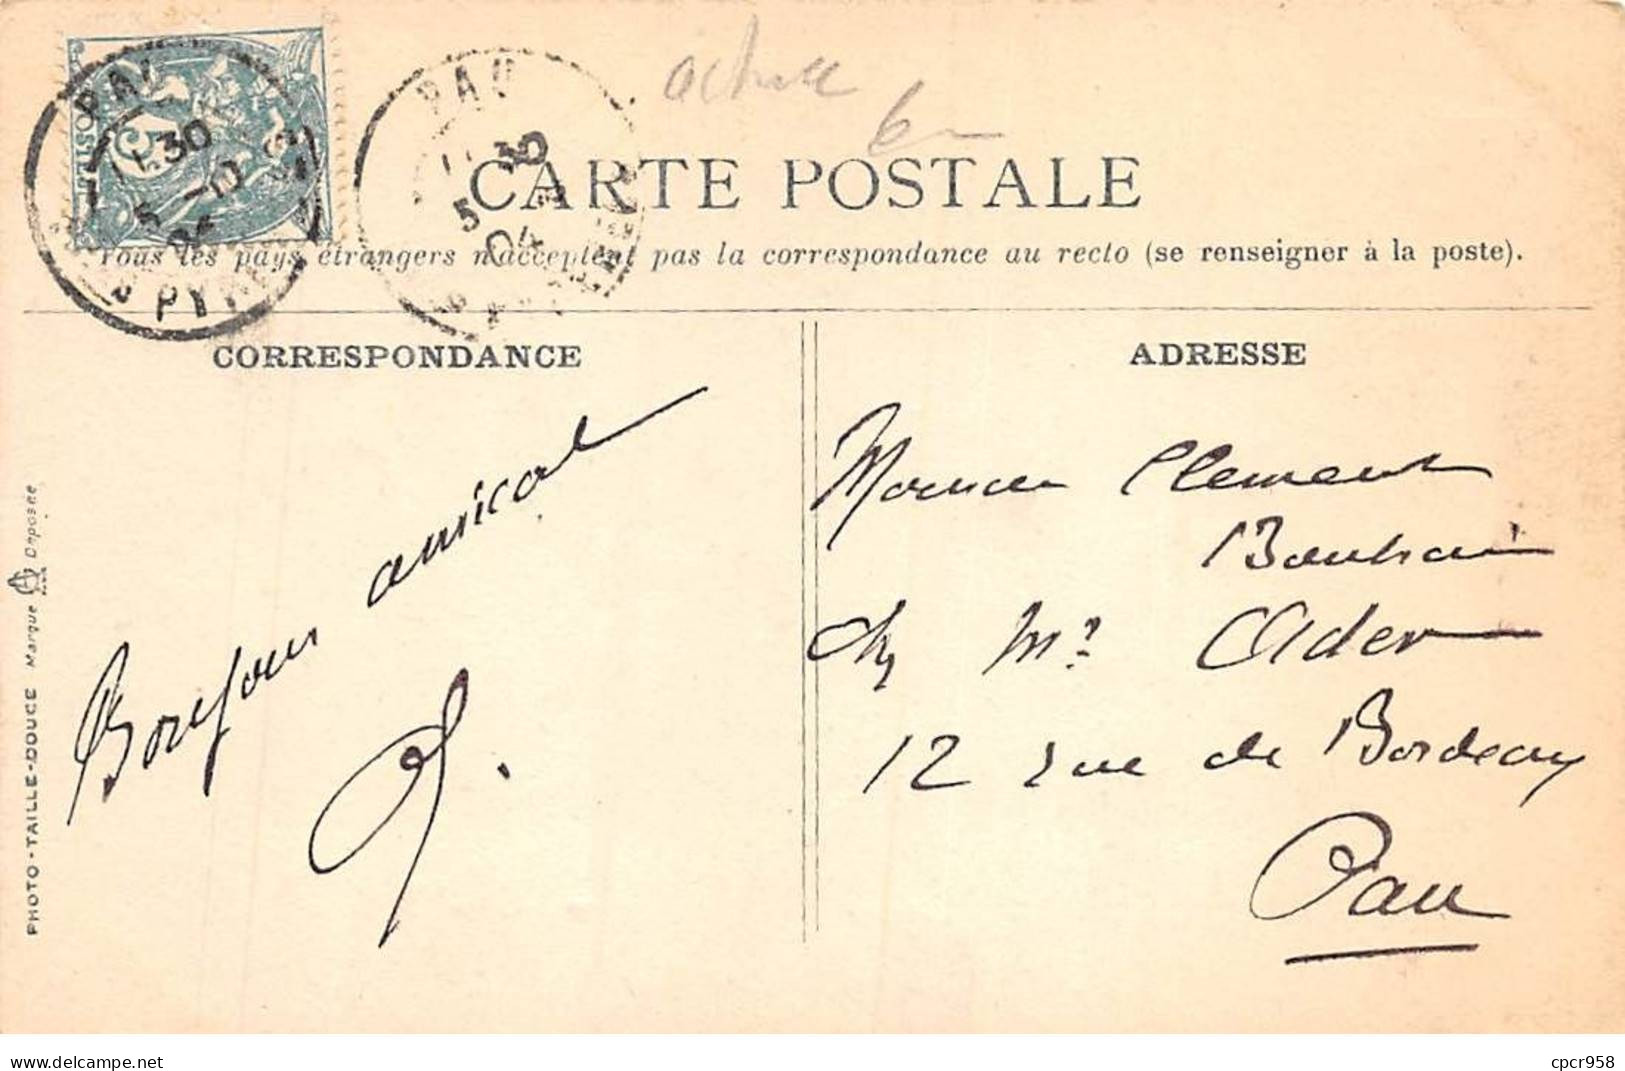 achille
6
PAU
11 30
5 -10
04
PYR
PAU
30
5
04
CARTE POSTALE
Tous les pays étrangers n'acceptent pas la correspondance au recto (se renseigner à la poste).
CORRESPONDANCE
ADRESSE
Bonjour amical
Clement
chz Mr Ader
12 rue de Bordeaux
Pau
PHOTO-TAILLE-DOUCE Marque Déposée
delcampe.net
cpcr958